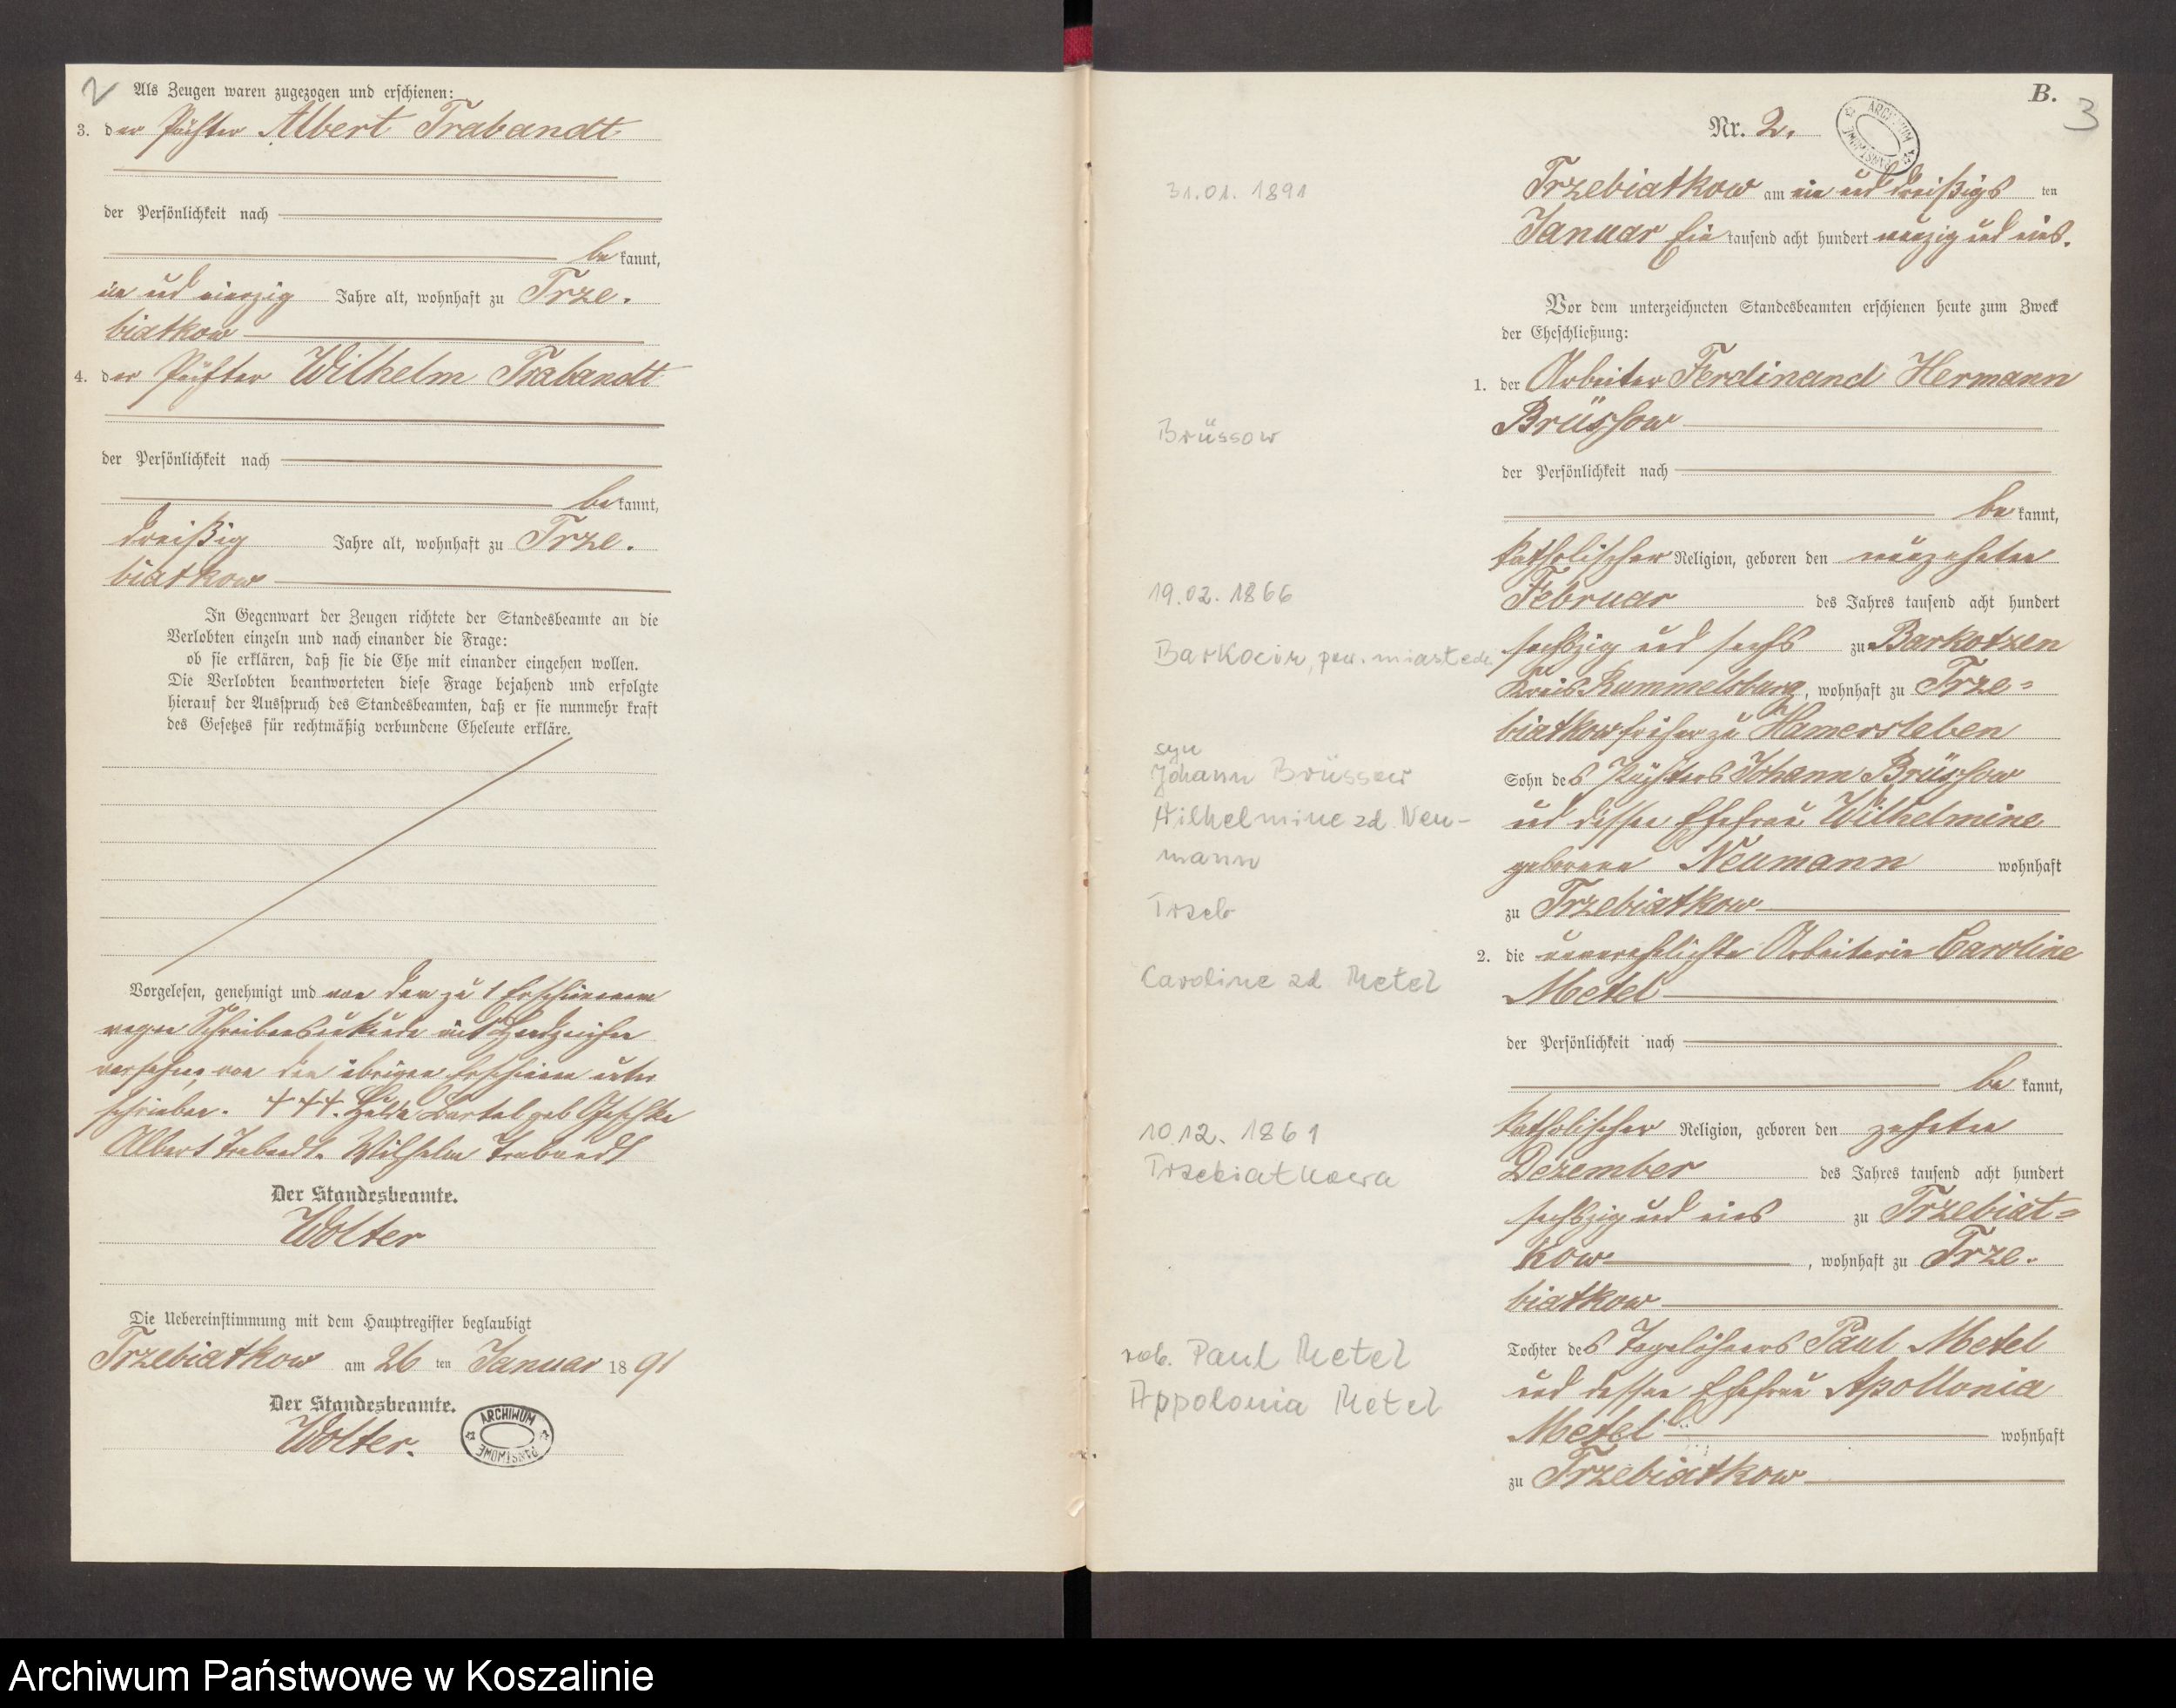 2
Als Zeugen waren zugezogen und erschienen:
3. der Pächter Albert Trabandt
der Persönlichkeit nach
be kannt,
ein und vierzig Jahre alt, wohnhaft zu Trze-
biatkow
4. der Pächter Wilhelm Trabandt
der Persönlichkeit nach
be kannt,
dreißig Jahre alt, wohnhaft zu Trze-
biatkow
In Gegenwart der Zeugen richtete der Standesbeamte an die
Verlobten einzeln und nach einander die Frage:
ob sie erklären, daß sie die Ehe mit einander eingehen wollen.
Die Verlobten beantworteten diese Frage bejahend und erfolgte
hierauf der Ausspruch des Standesbeamten, daß er sie nunmehr kraft
des Gesetzes für rechtmäßig verbundene Eheleute erkläre.
Vorgelesen, genehmigt und von dem zu 1 Erschienenen
wegen Schreibensunkunde mit Handzeichen
versehen, von den übrigen Erschienenen unter
schrieben. +++. Hulda Bartel geb
Albert Trabandt. Wilhelm Trabandt
Der Standesbeamte.
Wolter
Die Uebereinstimmung mit dem Hauptregister beglaubigt
Trzebiatkow am 26 ten Januar 18 91
Der Standesbeamte.
Wolter.
ARCHIWUM PAŃSTWOWE
B.
3
Nr. 2.
ARCHIWUM PAŃSTWOWE
31.01.1891
Trzebiatkow am ein und dreißigs ten
Januar Ein tausend acht hundert neunzig und eins.
Vor dem unterzeichneten Standesbeamten erschienen heute zum Zweck
der Eheschließung:
1. der Arbeiter Ferdinand Hermann
Brüssow
Brüssow
der Persönlichkeit nach
be kannt,
katholischer Religion, geboren den neunzehnten
19.02.1866
Februar des Jahres tausend acht hundert
sechszig und sechs zu Barkotzen
Barkocin, pow. miasteck.
Kreis Rummelsburg, wohnhaft zu Trze-
biatkow früher zu Hamersleben
syn
Johann Brüssow
Sohn des Pächters Johann Brüssow
Wilhelmine zd. Neu-
und dessen Ehefrau Wilhelmine
mann
geborene Neumann wohnhaft
Trzeb
zu Trzebiatkow
2. die unverehelichte Arbeiterin Caroline
Caroline zd Metel
Metel
der Persönlichkeit nach
be kannt,
katholischer Religion, geboren den zehnten
10.12.1861
Dezember des Jahres tausend acht hundert
Trzebiatkowa
sechszig und eins zu Trzebiat-
kow, wohnhaft zu Trze-
biatkow
rob. Paul Metel
Tochter des Tagelöhners Paul Metel
Appolonia Metel
und dessen Ehefrau Apollonia
Metel wohnhaft
zu Trzebiatkow
Archiwum Państwowe w Koszalinie